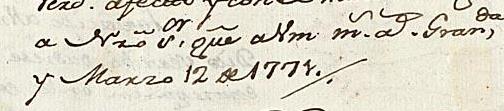 afecto y con
a Nrõ Sor. qũe a Vm ms. as. Granda,
y Marzo 12 de 1771.